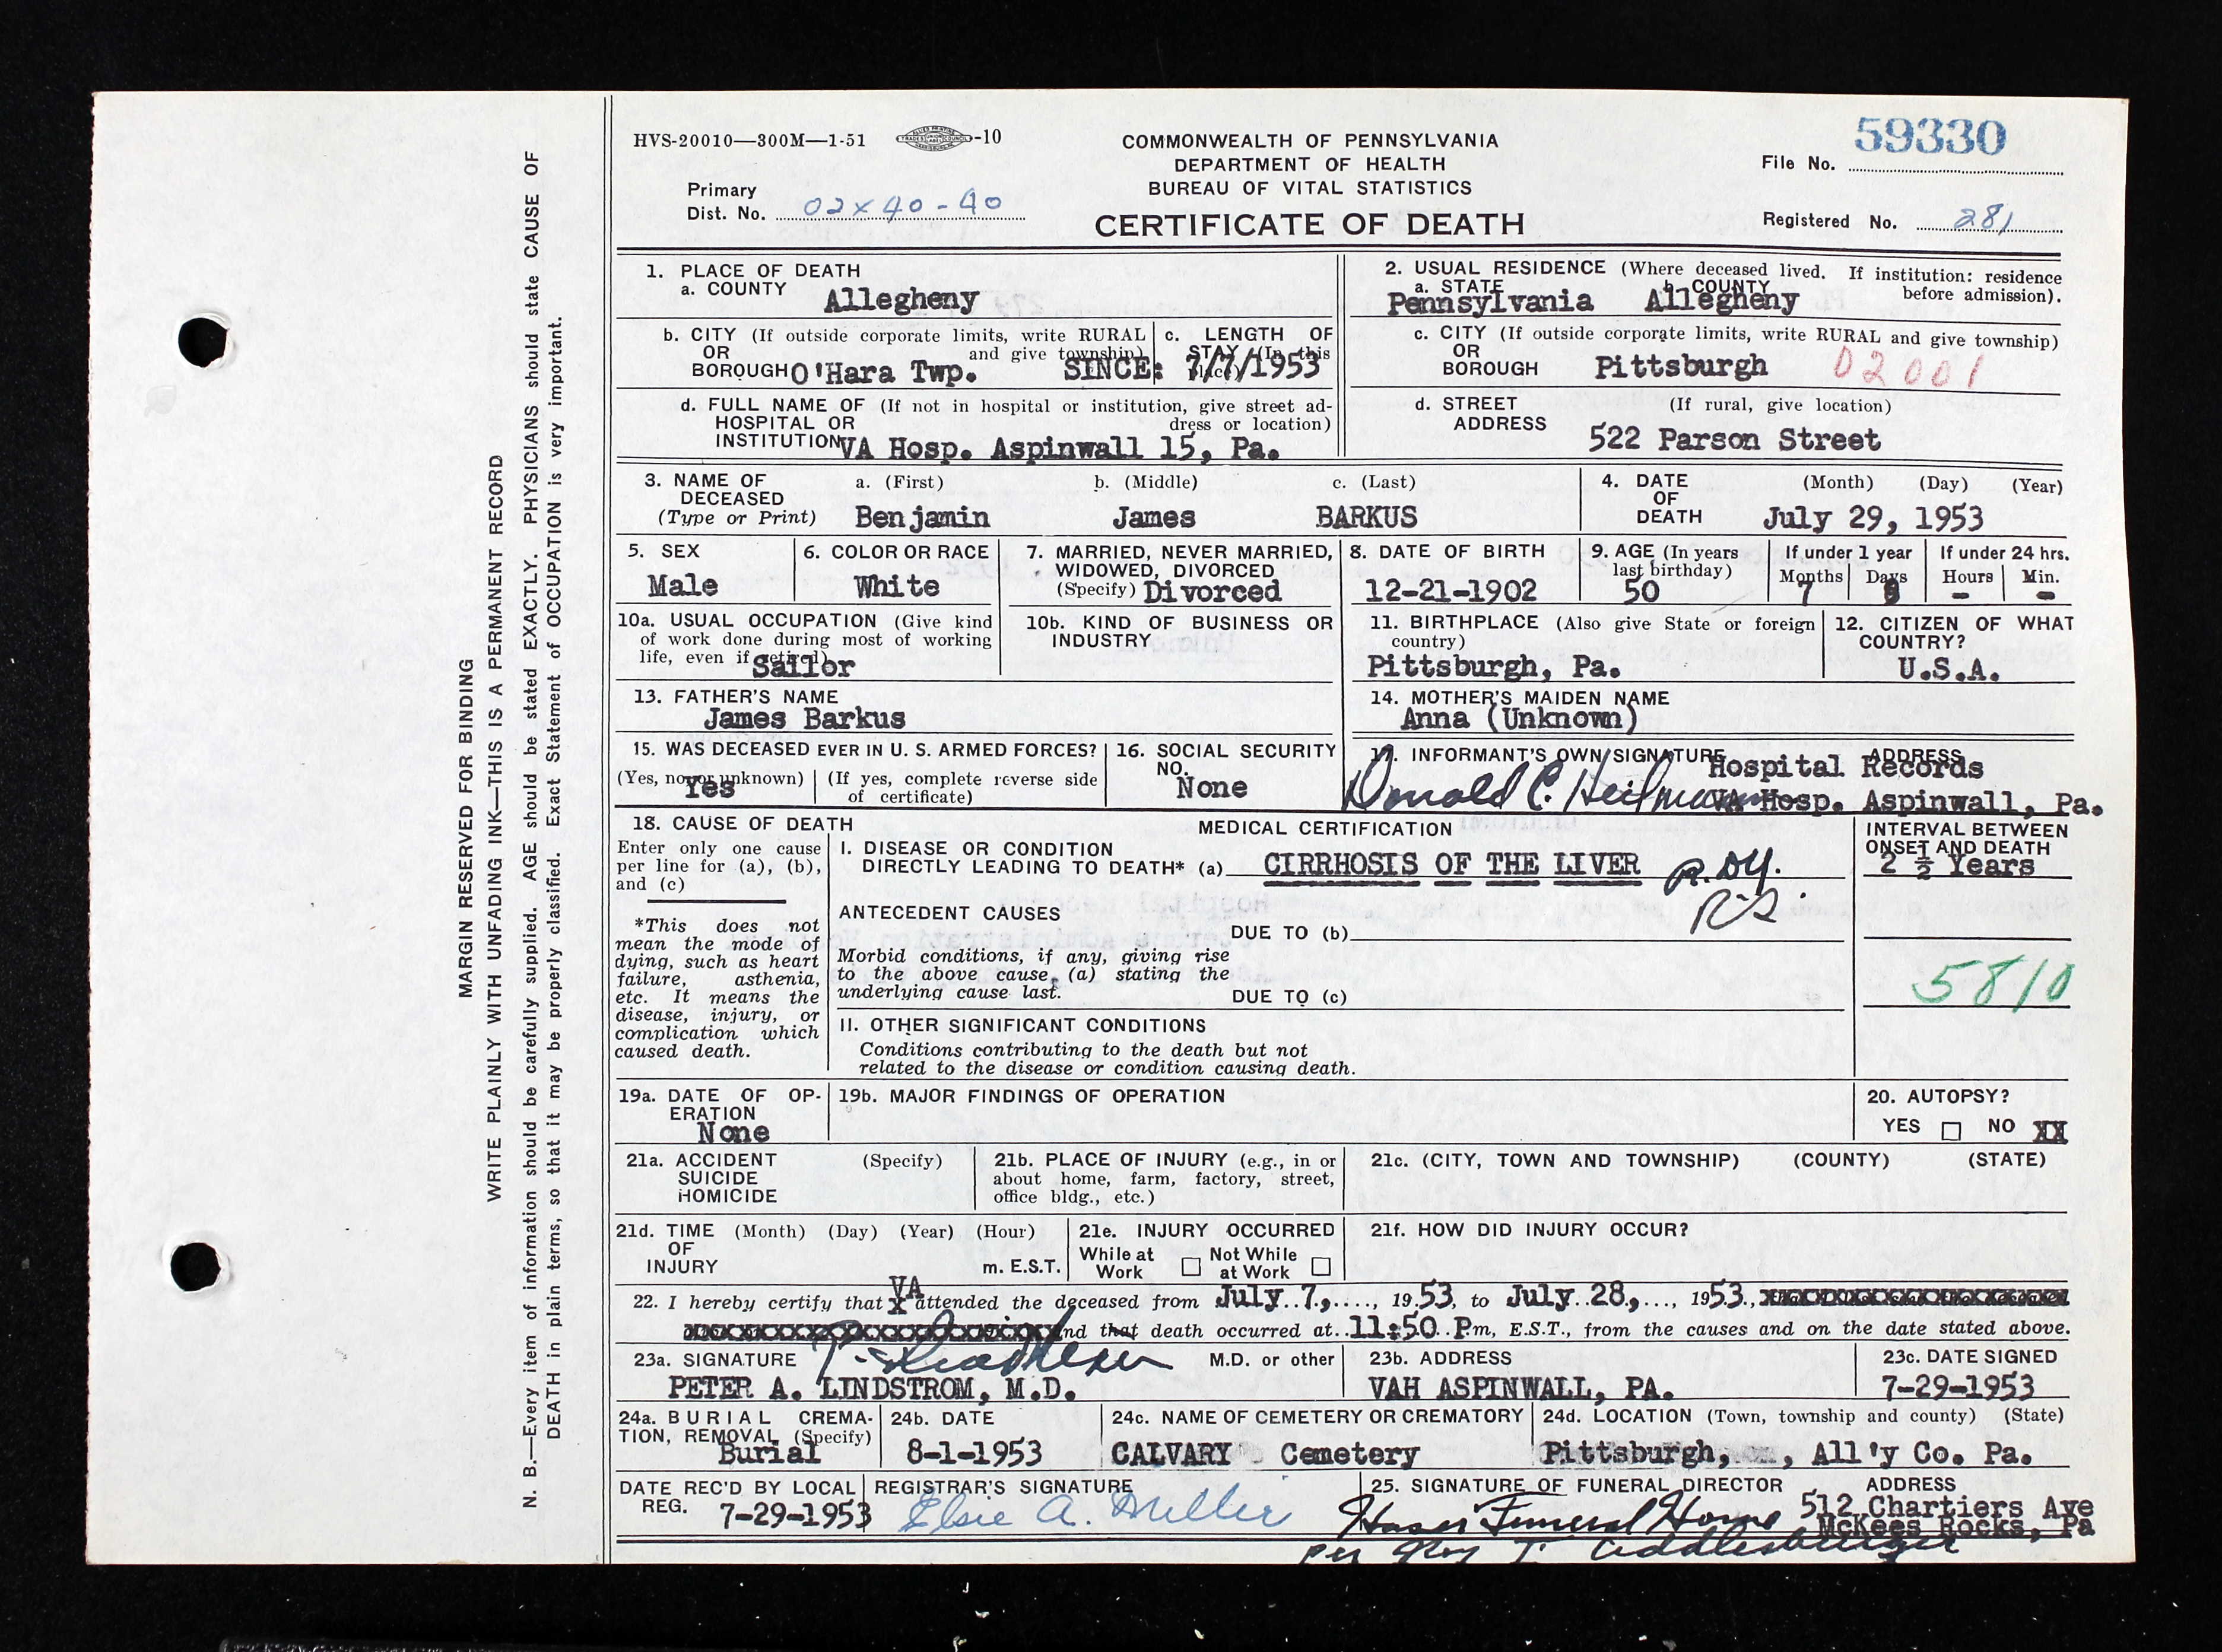 HVS-20010—300M—1-51 -10
COMMONWEALTH OF PENNSYLVANIA
DEPARTMENT OF HEALTH
BUREAU OF VITAL STATISTICS
CERTIFICATE OF DEATH
Primary
Dist. No. 02x40-40
59330
File No.
Registered No. 281
MARGIN RESERVED FOR BINDING
WRITE PLAINLY WITH UNFADING INK—THIS IS A PERMANENT RECORD
N. B.—Every item of information should be carefully supplied. AGE should be stated EXACTLY. PHYSICIANS should state CAUSE OF
DEATH in plain terms, so that it may be properly classified. Exact Statement of OCCUPATION is very important.
1. PLACE OF DEATH
a. COUNTY Allegheny
2. USUAL RESIDENCE (Where deceased lived. If institution: residence
before admission).
a. STATE b. COUNTY
Pennsylvania Allegheny
b. CITY (If outside corporate limits, write RURAL
OR and give township)
BOROUGH O'Hara Twp.
c. LENGTH OF
STAY (In this
place)
SINCE: 7/7/1953
c. CITY (If outside corporate limits, write RURAL and give township)
OR
BOROUGH Pittsburgh 02001
d. FULL NAME OF (If not in hospital or institution, give street ad-
HOSPITAL OR dress or location)
INSTITUTION VA Hosp. Aspinwall 15, Pa.
d. STREET (If rural, give location)
ADDRESS
522 Parson Street
3. NAME OF a. (First) b. (Middle) c. (Last)
DECEASED
(Type or Print) Benjamin James BARKUS
4. DATE (Month) (Day) (Year)
OF
DEATH July 29, 1953
5. SEX
Male
6. COLOR OR RACE
White
7. MARRIED, NEVER MARRIED,
WIDOWED, DIVORCED
(Specify) Divorced
8. DATE OF BIRTH
12-21-1902
9. AGE (In years
last birthday)
50
If under 1 year
Months Days
7
If under 24 hrs.
Hours Min.
- -
10a. USUAL OCCUPATION (Give kind
of work done during most of working
life, even if retired)
Sailor
10b. KIND OF BUSINESS OR
INDUSTRY
11. BIRTHPLACE (Also give State or foreign
country)
Pittsburgh, Pa.
12. CITIZEN OF WHAT
COUNTRY?
U.S.A.
13. FATHER'S NAME
James Barkus
14. MOTHER'S MAIDEN NAME
Anna (Unknown)
15. WAS DECEASED EVER IN U. S. ARMED FORCES?
(Yes, no, or unknown) (If yes, complete reverse side
of certificate)
Yes
16. SOCIAL SECURITY
NO.
None
17. INFORMANT'S OWN SIGNATURE ADDRESS
Hospital Records
Donald C. Heilman VA Hosp. Aspinwall, Pa.
18. CAUSE OF DEATH
Enter only one cause
per line for (a), (b),
and (c)
*This does not
mean the mode of
dying, such as heart
failure, asthenia,
etc. It means the
disease, injury, or
complication which
caused death.
MEDICAL CERTIFICATION
I. DISEASE OR CONDITION
DIRECTLY LEADING TO DEATH* (a) CIRRHOSIS OF THE LIVER
ANTECEDENT CAUSES
DUE TO (b)
Morbid conditions, if any, giving rise
to the above cause, (a) stating the
underlying cause last.
DUE TO (c)
II. OTHER SIGNIFICANT CONDITIONS
Conditions contributing to the death but not
related to the disease or condition causing death.
INTERVAL BETWEEN
ONSET AND DEATH
2 1/2 Years
5810
19a. DATE OF OP-
ERATION
None
19b. MAJOR FINDINGS OF OPERATION
20. AUTOPSY?
YES NO XX
21a. ACCIDENT (Specify)
SUICIDE
HOMICIDE
21b. PLACE OF INJURY (e.g., in or
about home, farm, factory, street,
office bldg., etc.)
21c. (CITY, TOWN AND TOWNSHIP) (COUNTY) (STATE)
21d. TIME (Month) (Day) (Year) (Hour)
OF
INJURY m. E.S.T.
21e. INJURY OCCURRED
While at Not While
Work at Work
21f. HOW DID INJURY OCCUR?
VA
22. I hereby certify that X attended the deceased from July 7, 1953, to July 28, 1953,
and that death occurred at 11:50 P.m, E.S.T., from the causes and on the date stated above.
23a. SIGNATURE M.D. or other
PETER A. LINDSTROM, M.D.
23b. ADDRESS
VAH ASPINWALL, PA.
23c. DATE SIGNED
7-29-1953
24a. BURIAL CREMA-
TION, REMOVAL (Specify)
Burial
24b. DATE
8-1-1953
24c. NAME OF CEMETERY OR CREMATORY
CALVARY Cemetery
24d. LOCATION (Town, township and county) (State)
Pittsburgh, , All'y Co. Pa.
DATE REC'D BY LOCAL
REG. 7-29-1953
REGISTRAR'S SIGNATURE
Elsie A. Miller
25. SIGNATURE OF FUNERAL DIRECTOR ADDRESS
Funeral Home 512 Chartiers Ave
McKees Rocks, Pa
per